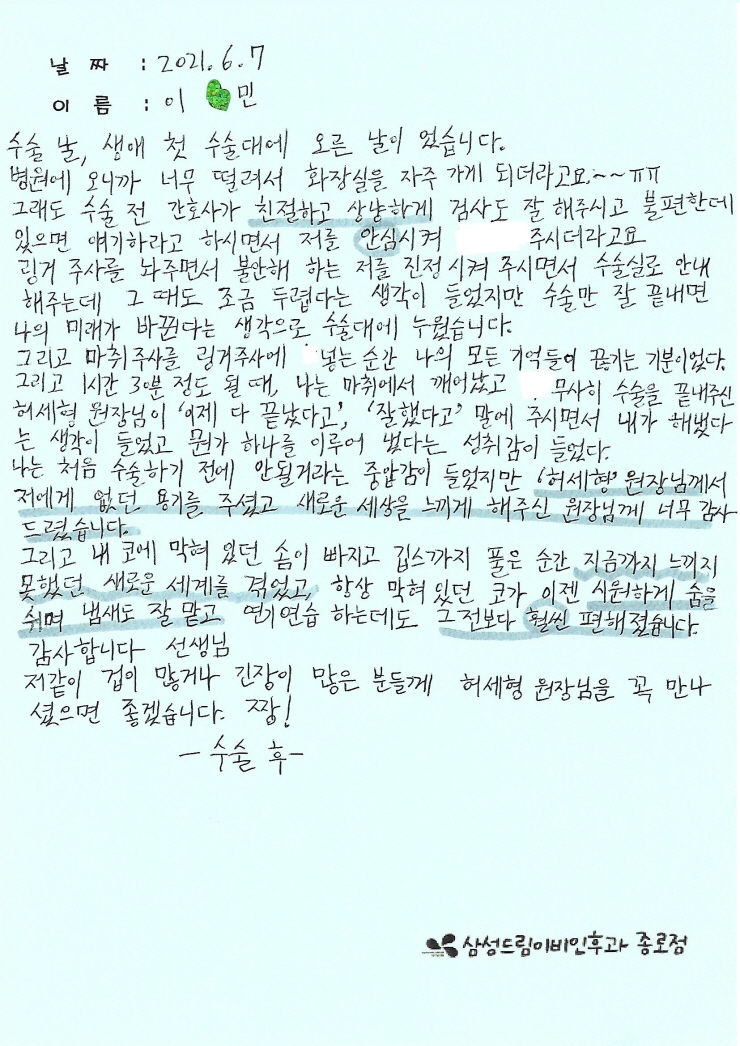 날 짜 : 2021.6.7
이 름 : 이 민
수술 날, 생애 첫 수술대에 오른 날이 었습니다.
병원에 오니까 너무 떨려서 화장실을 자주 가게 되더라고요~~ㅠㅠ
그래도 수술 전 간호사가 친절하고 상냥하게 검사도 잘 해주시고 불편한데
있으면 얘기하라고 하시면서 저를 안심시켜 주시더라고요
링거 주사를 놔주면서 불안해 하는 저를 진정시켜 주시면서 수술실로 안내
해주는데 그 때도 조금 두렵다는 생각이 들었지만 수술만 잘 끝내면
나의 미래가 바뀐다는 생각으로 수술대에 누웠습니다.
그리고 마취주사를 링거주사에 넣는 순간 나의 모든 기억들이 끊기는 기분이었다.
그리고 1시간 30분 정도 될 때, 나는 마취에서 깨어났고 무사히 수술을 끝내주신
허세형 원장님이 '이제 다 끝났다고', '잘했다고' 말에 주시면서 내가 해냈다
는 생각이 들었고 뭔가 하나를 이루어 냈다는 성취감이 들었다.
나는 처음 수술하기 전에 안될거라는 중압감이 들었지만 '허세형' 원장님께서
저에게 없던 용기를 주셨고 새로운 세상을 느끼게 해주신 원장님께 너무 감사
드렸습니다.
그리고 내 코에 막혀 있던 솜이 빠지고 깁스까지 풀은 순간 지금까지 느끼지
못했던 새로운 세계를 겪었고, 항상 막혀있던 코가 이젠 시원하게 숨을
쉬며 냄새도 잘 맡고 연기연습 하는데도 그전보다 훨씬 편해졌습니다.
감사합니다 선생님
저같이 겁이 많거나 긴장이 많은 분들께 허세형 원장님을 꼭 만나
셨으면 좋겠습니다. 짱!
- 수술 후 -
삼성드림이비인후과 종로점